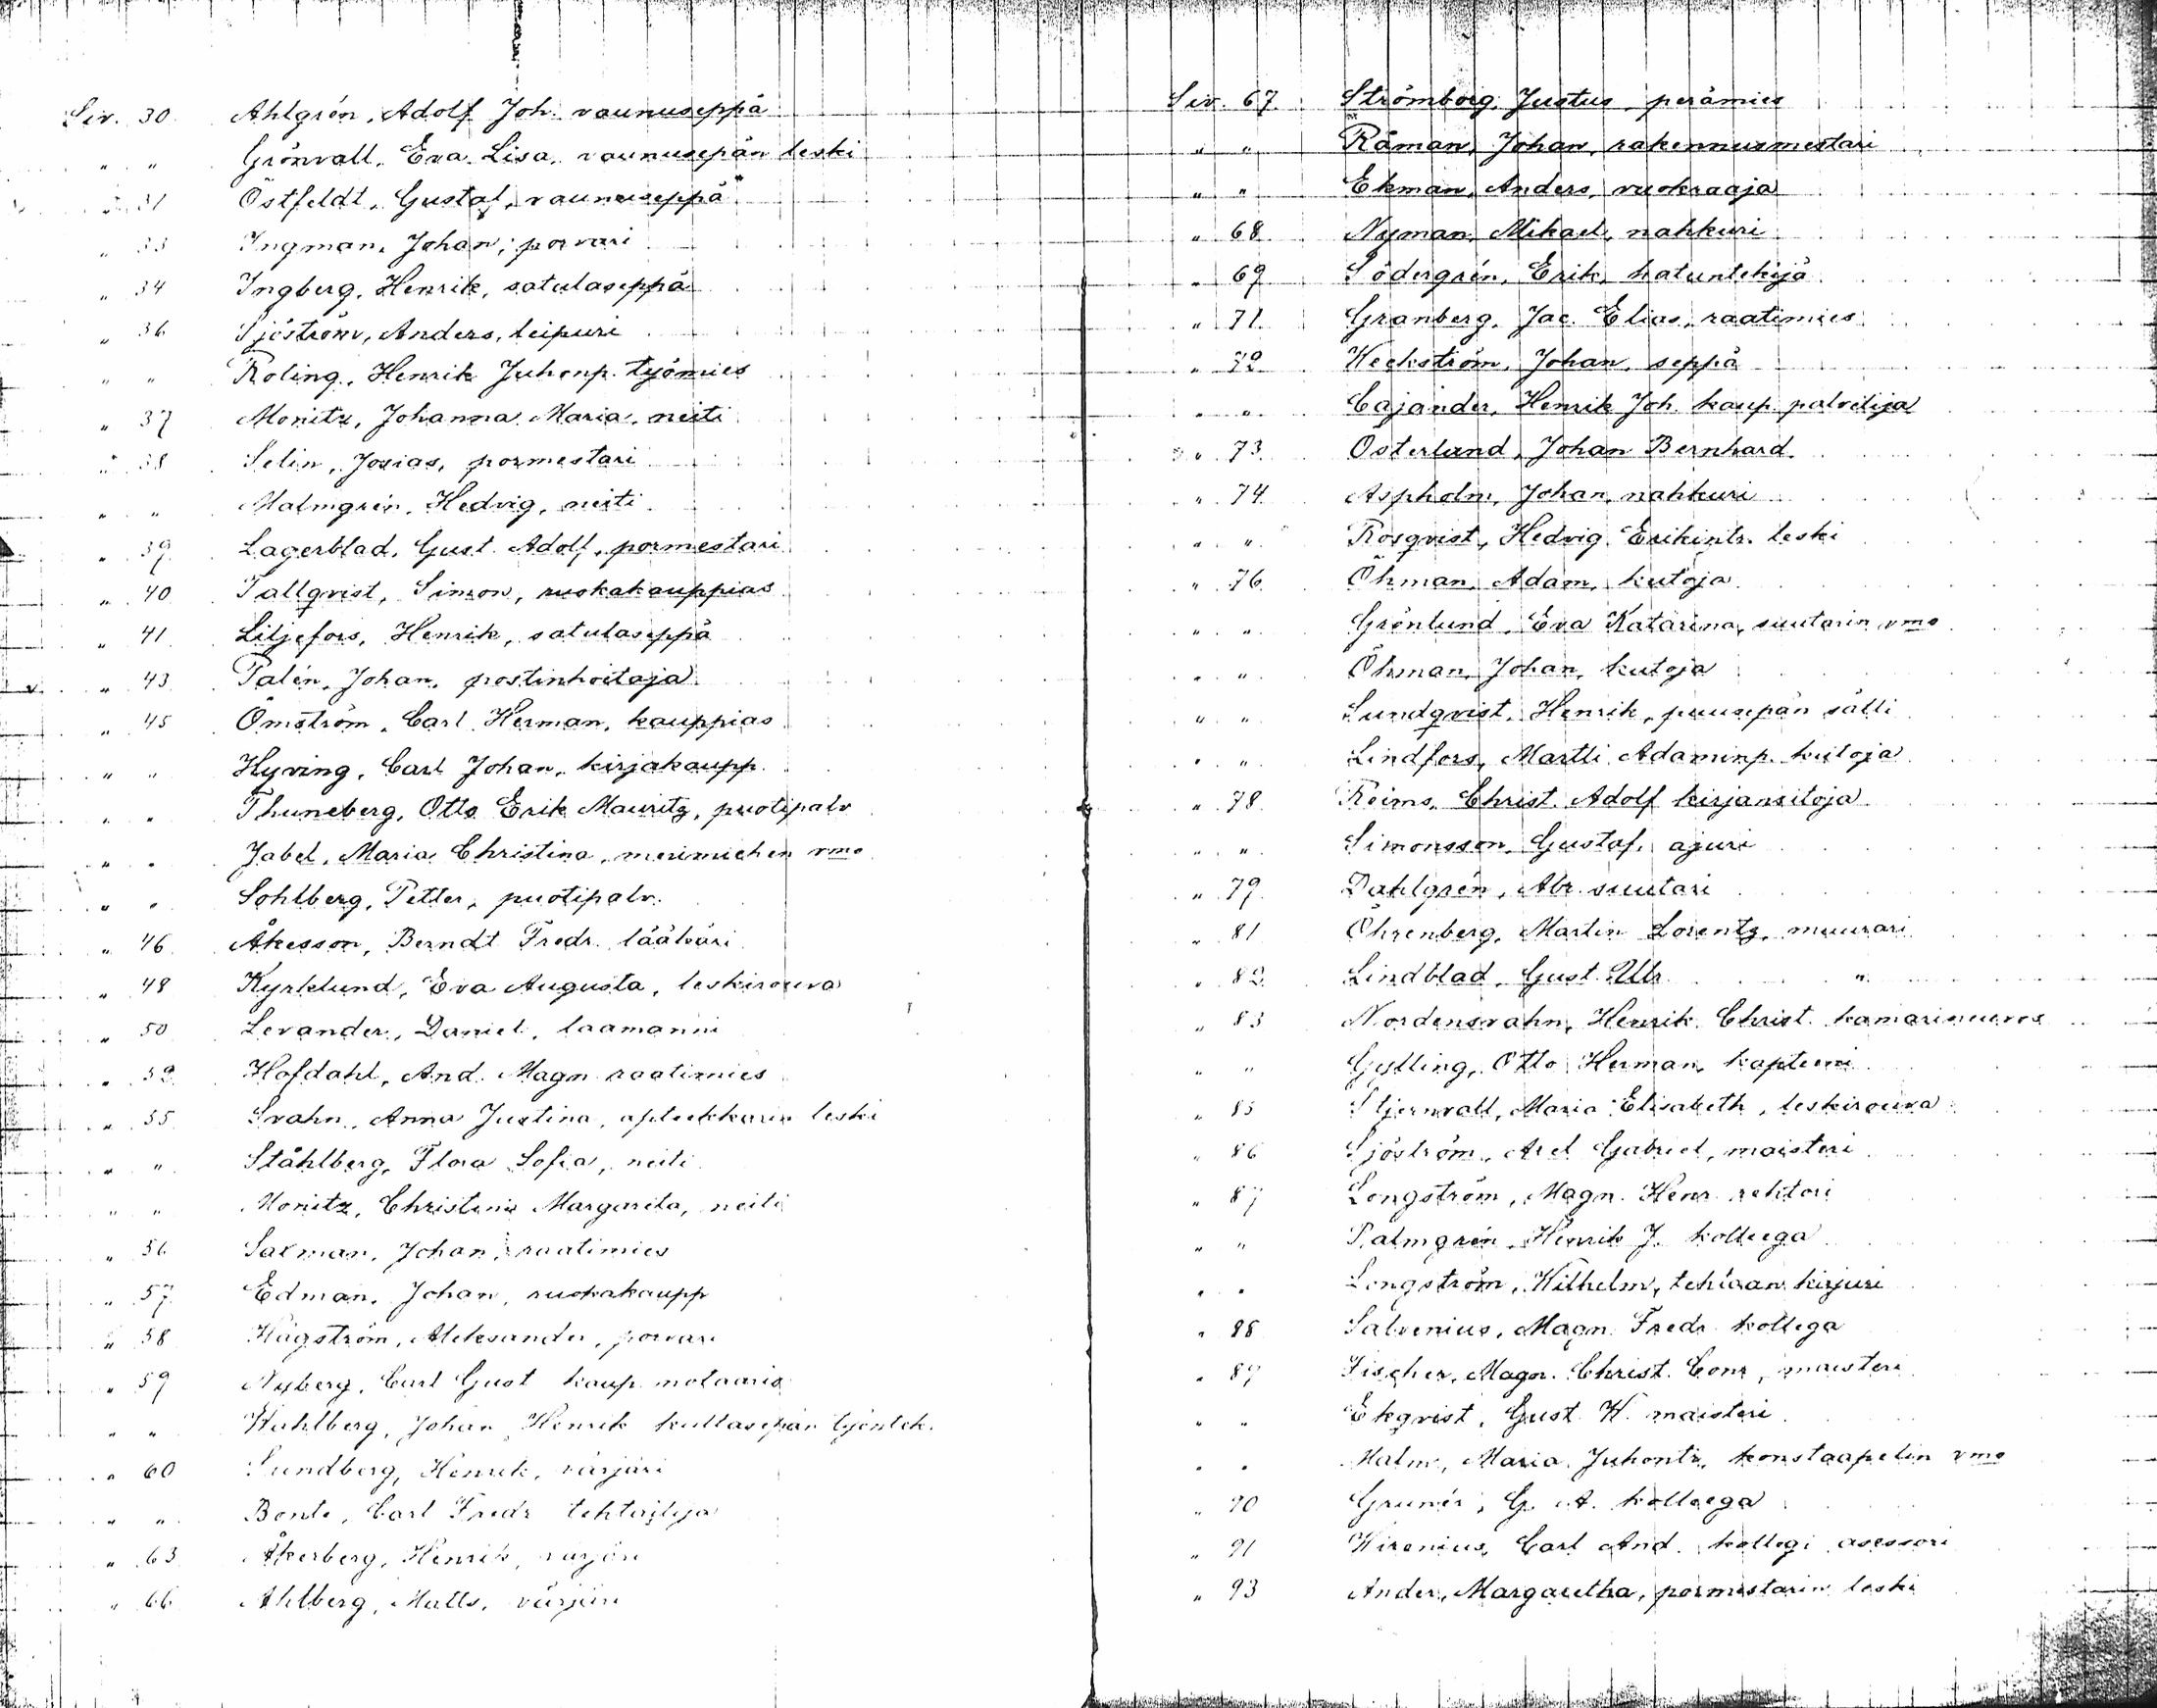 Siv. 30 Ahlgrén, Adolf Joh. vaunuseppä
" " Grönvall, Eva Lisa, vaunusepän leski
" 31 Östfeldt, Gustaf, vaunuseppä
" 33 Ingman, Johan, porvari
" 34 Ingberg, Henrik, satulaseppä
" 36 Sjöström, Anders, leipuri
" " Roling, Henrik Juhonp. työmies
" 37 Monitz, Johanna Maria, neiti
" 38 Selin, Josias, pormestari
" " Malmgrén, Hedvig, neiti
" 39 Lagerblad, Gust. Adolf, pormestari
" 40 Tallqvist, Simon, ruokakauppias
" 41 Liljefors, Henrik, satulaseppä
" 43 Palén, Johan, postinhoitaja
" 45 Ömström, Carl Herman, kauppias
" " Hyving, Carl Johan, kirjakaupp.
" " Thuneberg, Otto Erik Mauritz, puotipalv
" " Jabel, Maria Christina, merimiehen vmo
" " Sohlberg, Petter, puotipalv.
" 46 Åkesson, Berndt Fredr. lääkäri
" 48 Kyrklund, Eva Augusta, leskirouva
" 50 Levander, Daniel, laamanni
" 52 Hofdahl, And. Magn. raatimies
" 55 Svahn, Anna Justina, apteekkarin leski
" " Ståhlberg, Flora Sofia, neiti
" " Monitz, Christina Margareta, neiti
" 56 Saxman, Johan, raatimies
" 57 Edman, Johan, ruokakaupp
" 58 Hägström, Aleksander, porvari
" 59 Nyberg, Carl Gust kaup. notaario
" " Wahlberg, Johan Henrik kultasepän työntek.
" 60 Sundberg, Henrik, värjäri
" " Bonte, Carl Fredr tehtailija
" 63 Åkerberg, Henrik, värjäri
" 66 Ahlberg, Matts, värjäri
Siv. 67 Strömborg, Justus, perämies
" " Råman, Johan, rakennusmestari
" " Ekman, Anders, vuokraaja
" 68 Nyman, Mikael, nahkuri
" 69 Södergrén, Erik, hatuntekijä
" 71 Granberg, Jac. Elias, raatimies
" 72 Weckström, Johan, seppä
" " Cajander, Henrik Joh. kaup. palvelija
" 73 Österlund, Johan Bernhard.
" 74 Aspholm, Johan, nahkuri
" " Rosqvist, Hedvig Erikintr. leski
" 76 Öhman, Adam, kutoja
" " Grönlund, Eva Katarina, suutarin vmo
" " Öhman, Johan, kutoja
" " Sundqvist, Henrik, puusepän sälli
" " Lindfors, Martti Adaminp. kutoja
" 78 Reims, Christ. Adolf kirjansitoja
" " Simonsson, Gustaf, ajuri
" 79 Dahlgrén, Abr. suutari
" 81 Öhrenberg, Martin Lorentz, muurari
" 82 Lindblad, Gust. Ulr. "
" 83 Nordensvahn, Henrik Christ. kamarineuvos
" " Gylling, Otto Herman, kapteeni
" 85 Stjernvall, Maria Elisabeth, leskirouva
" 86 Sjöström, Axel Gabriel, maisteri
" 87 Longström, Magn. Henr. rehtori
" " Palmgrén, Henrik J. kolleega
" " Longström, Wilhelm, tehtaan kirjuri
" 88 Salvenius, Magn. Fredr. kollega
" 89 Fischer, Magn. Christ. Conr, maisteri
" " Ekqvist, Gust. W. maisteri
" " Malm, Maria Juhontr, konstaapelin vmo
" 90 Grunér, G. A. kolleega
" 91 Wirenius, Carl And. kollegi asessori
" 93 Ander, Margaretha, pormestarin leski